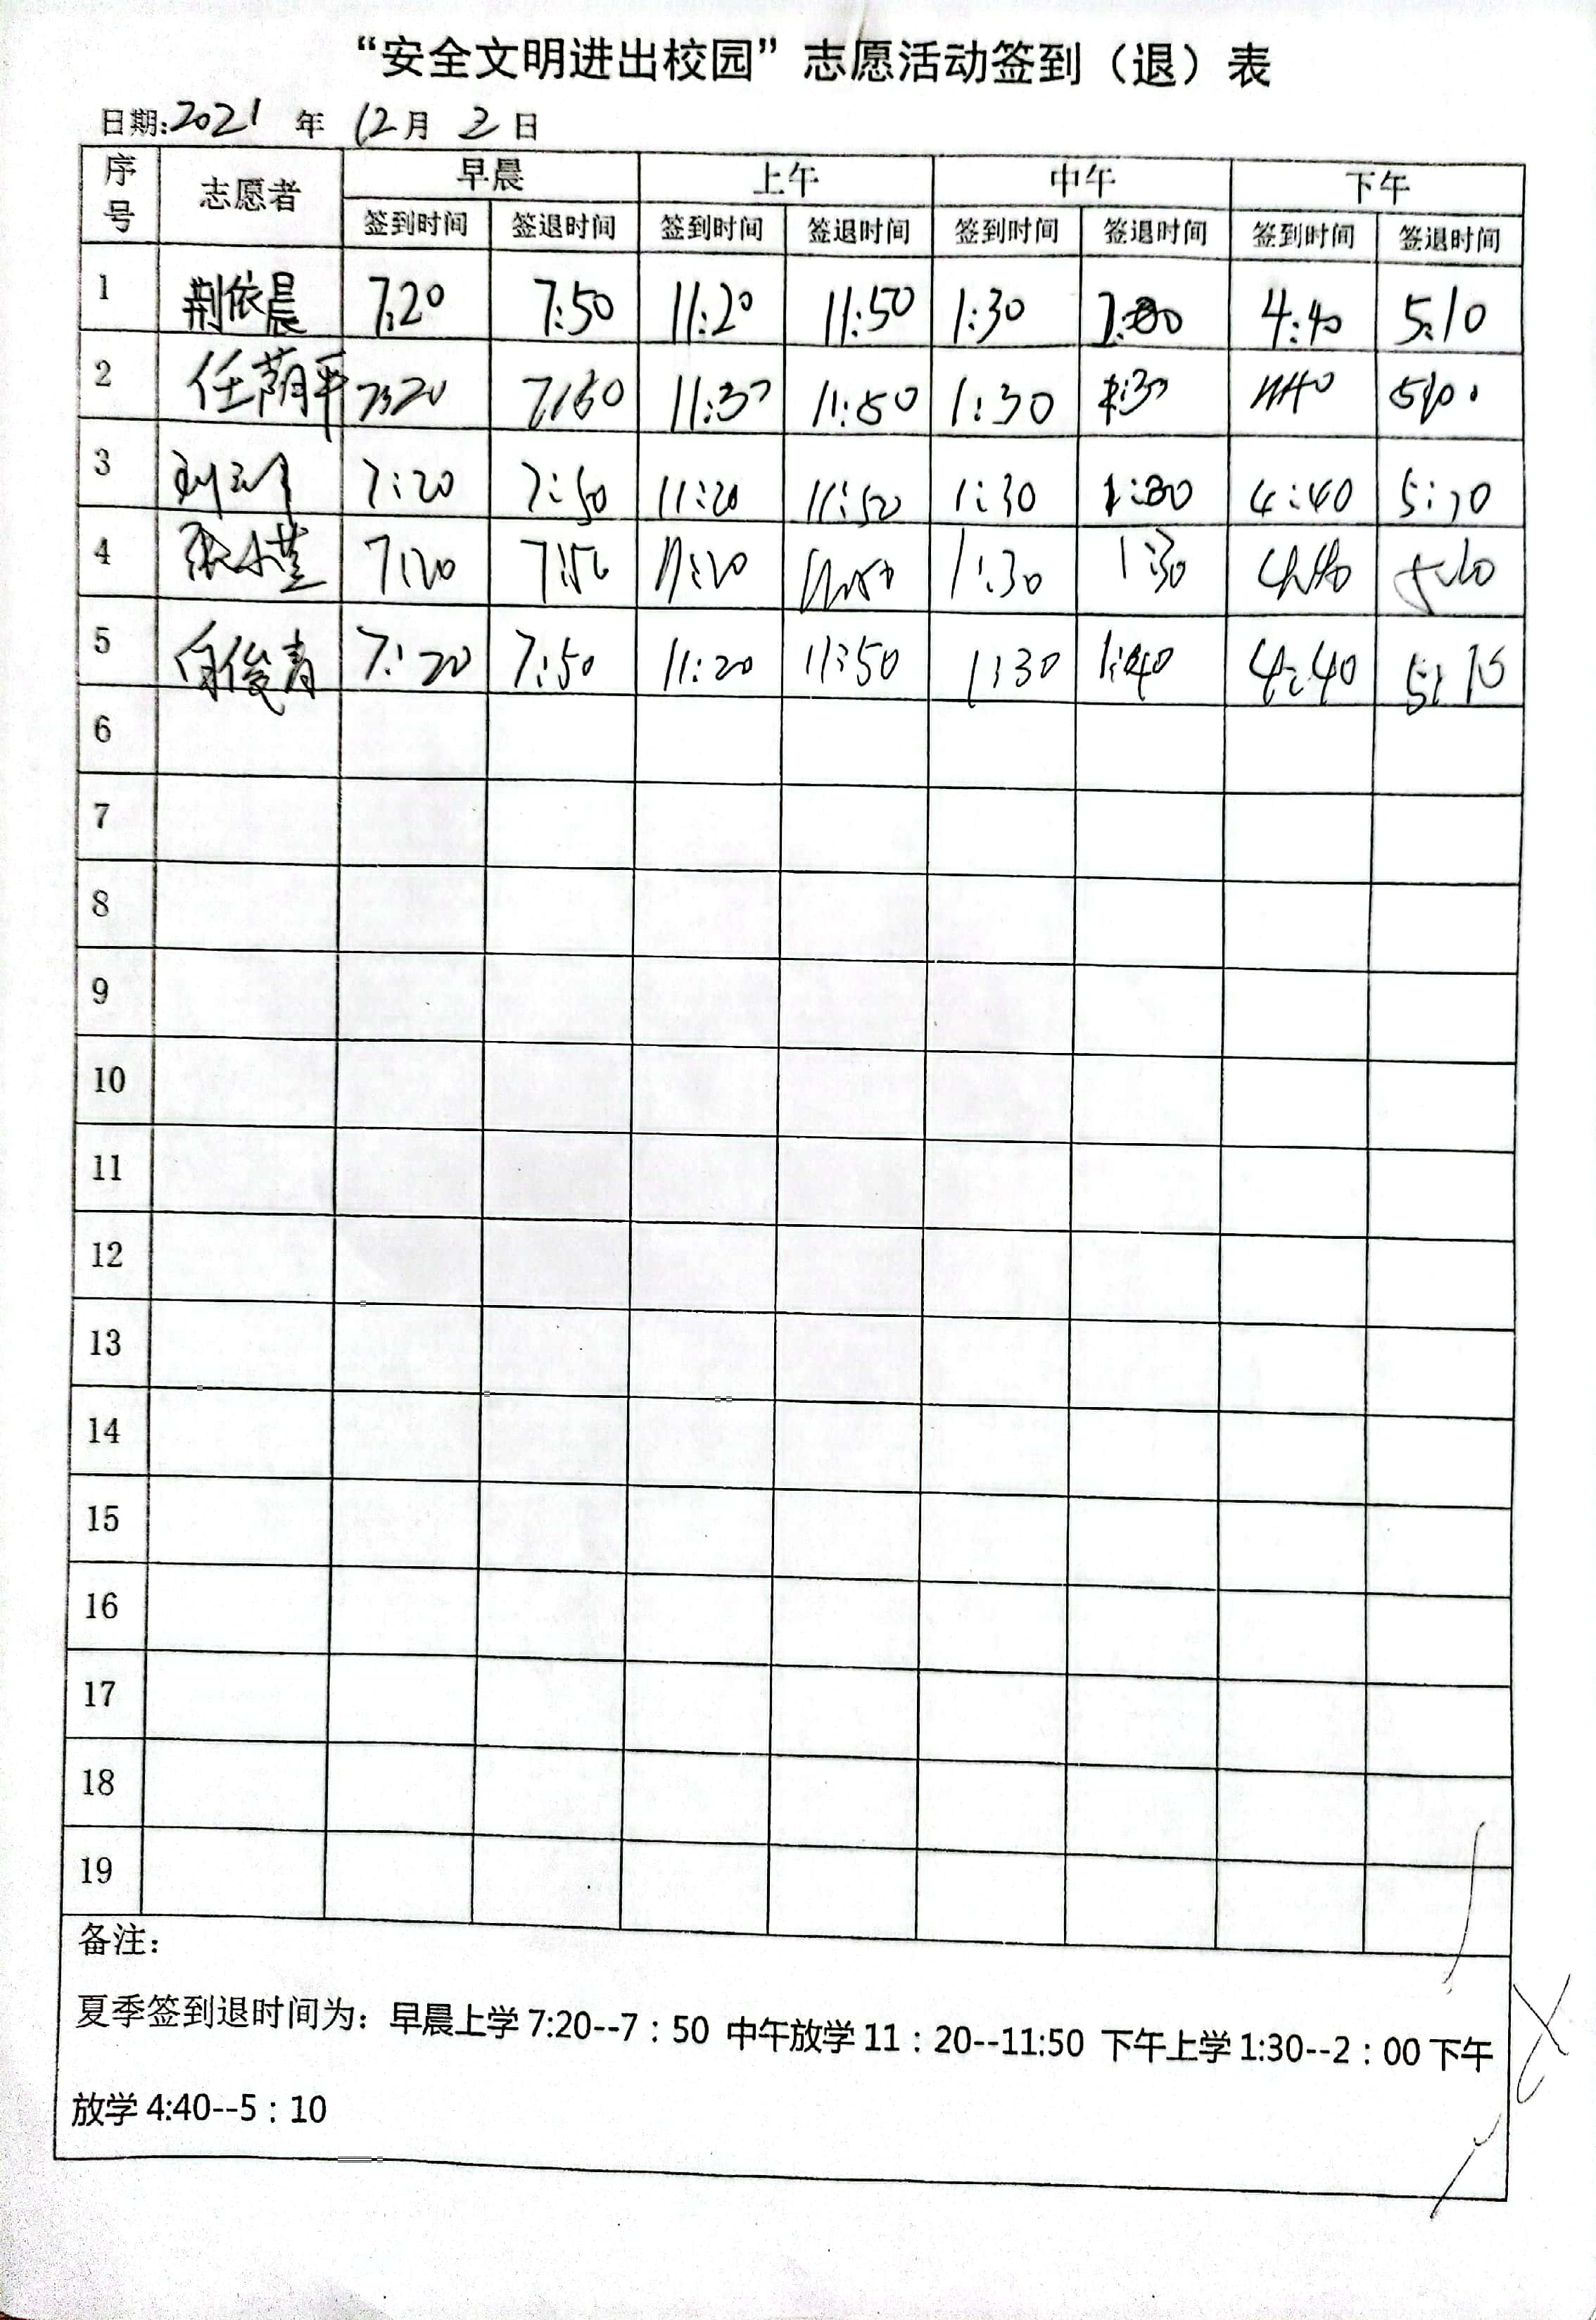 “安全文明进出校园”志愿活动签到（退）表
日期:2021 年 12月 2 日
序号 志愿者 早晨 上午 中午 下午
签到时间 签退时间 签到时间 签退时间 签到时间 签退时间 签到时间 签退时间
1 荆依晨 7:20 7:50 11:20 11:50 1:30 4:40 5:10
2 任荫平 7:20 7:50 11:30 11:50 1:30
3 7:20 7:50 11:20 11:50 1:30 4:40 5:10
4 7:20 7:50 11:20 1:30 1:30 5:10
5 白俊青 7:20 7:50 11:20 11:50 1:30 1:40 4:40 5:10
6
7
8
9
10
11
12
13
14
15
16
17
18
19
备注：
夏季签到退时间为：早晨上学7:20--7：50 中午放学11：20--11:50 下午上学1:30--2：00下午
放学4:40--5：10